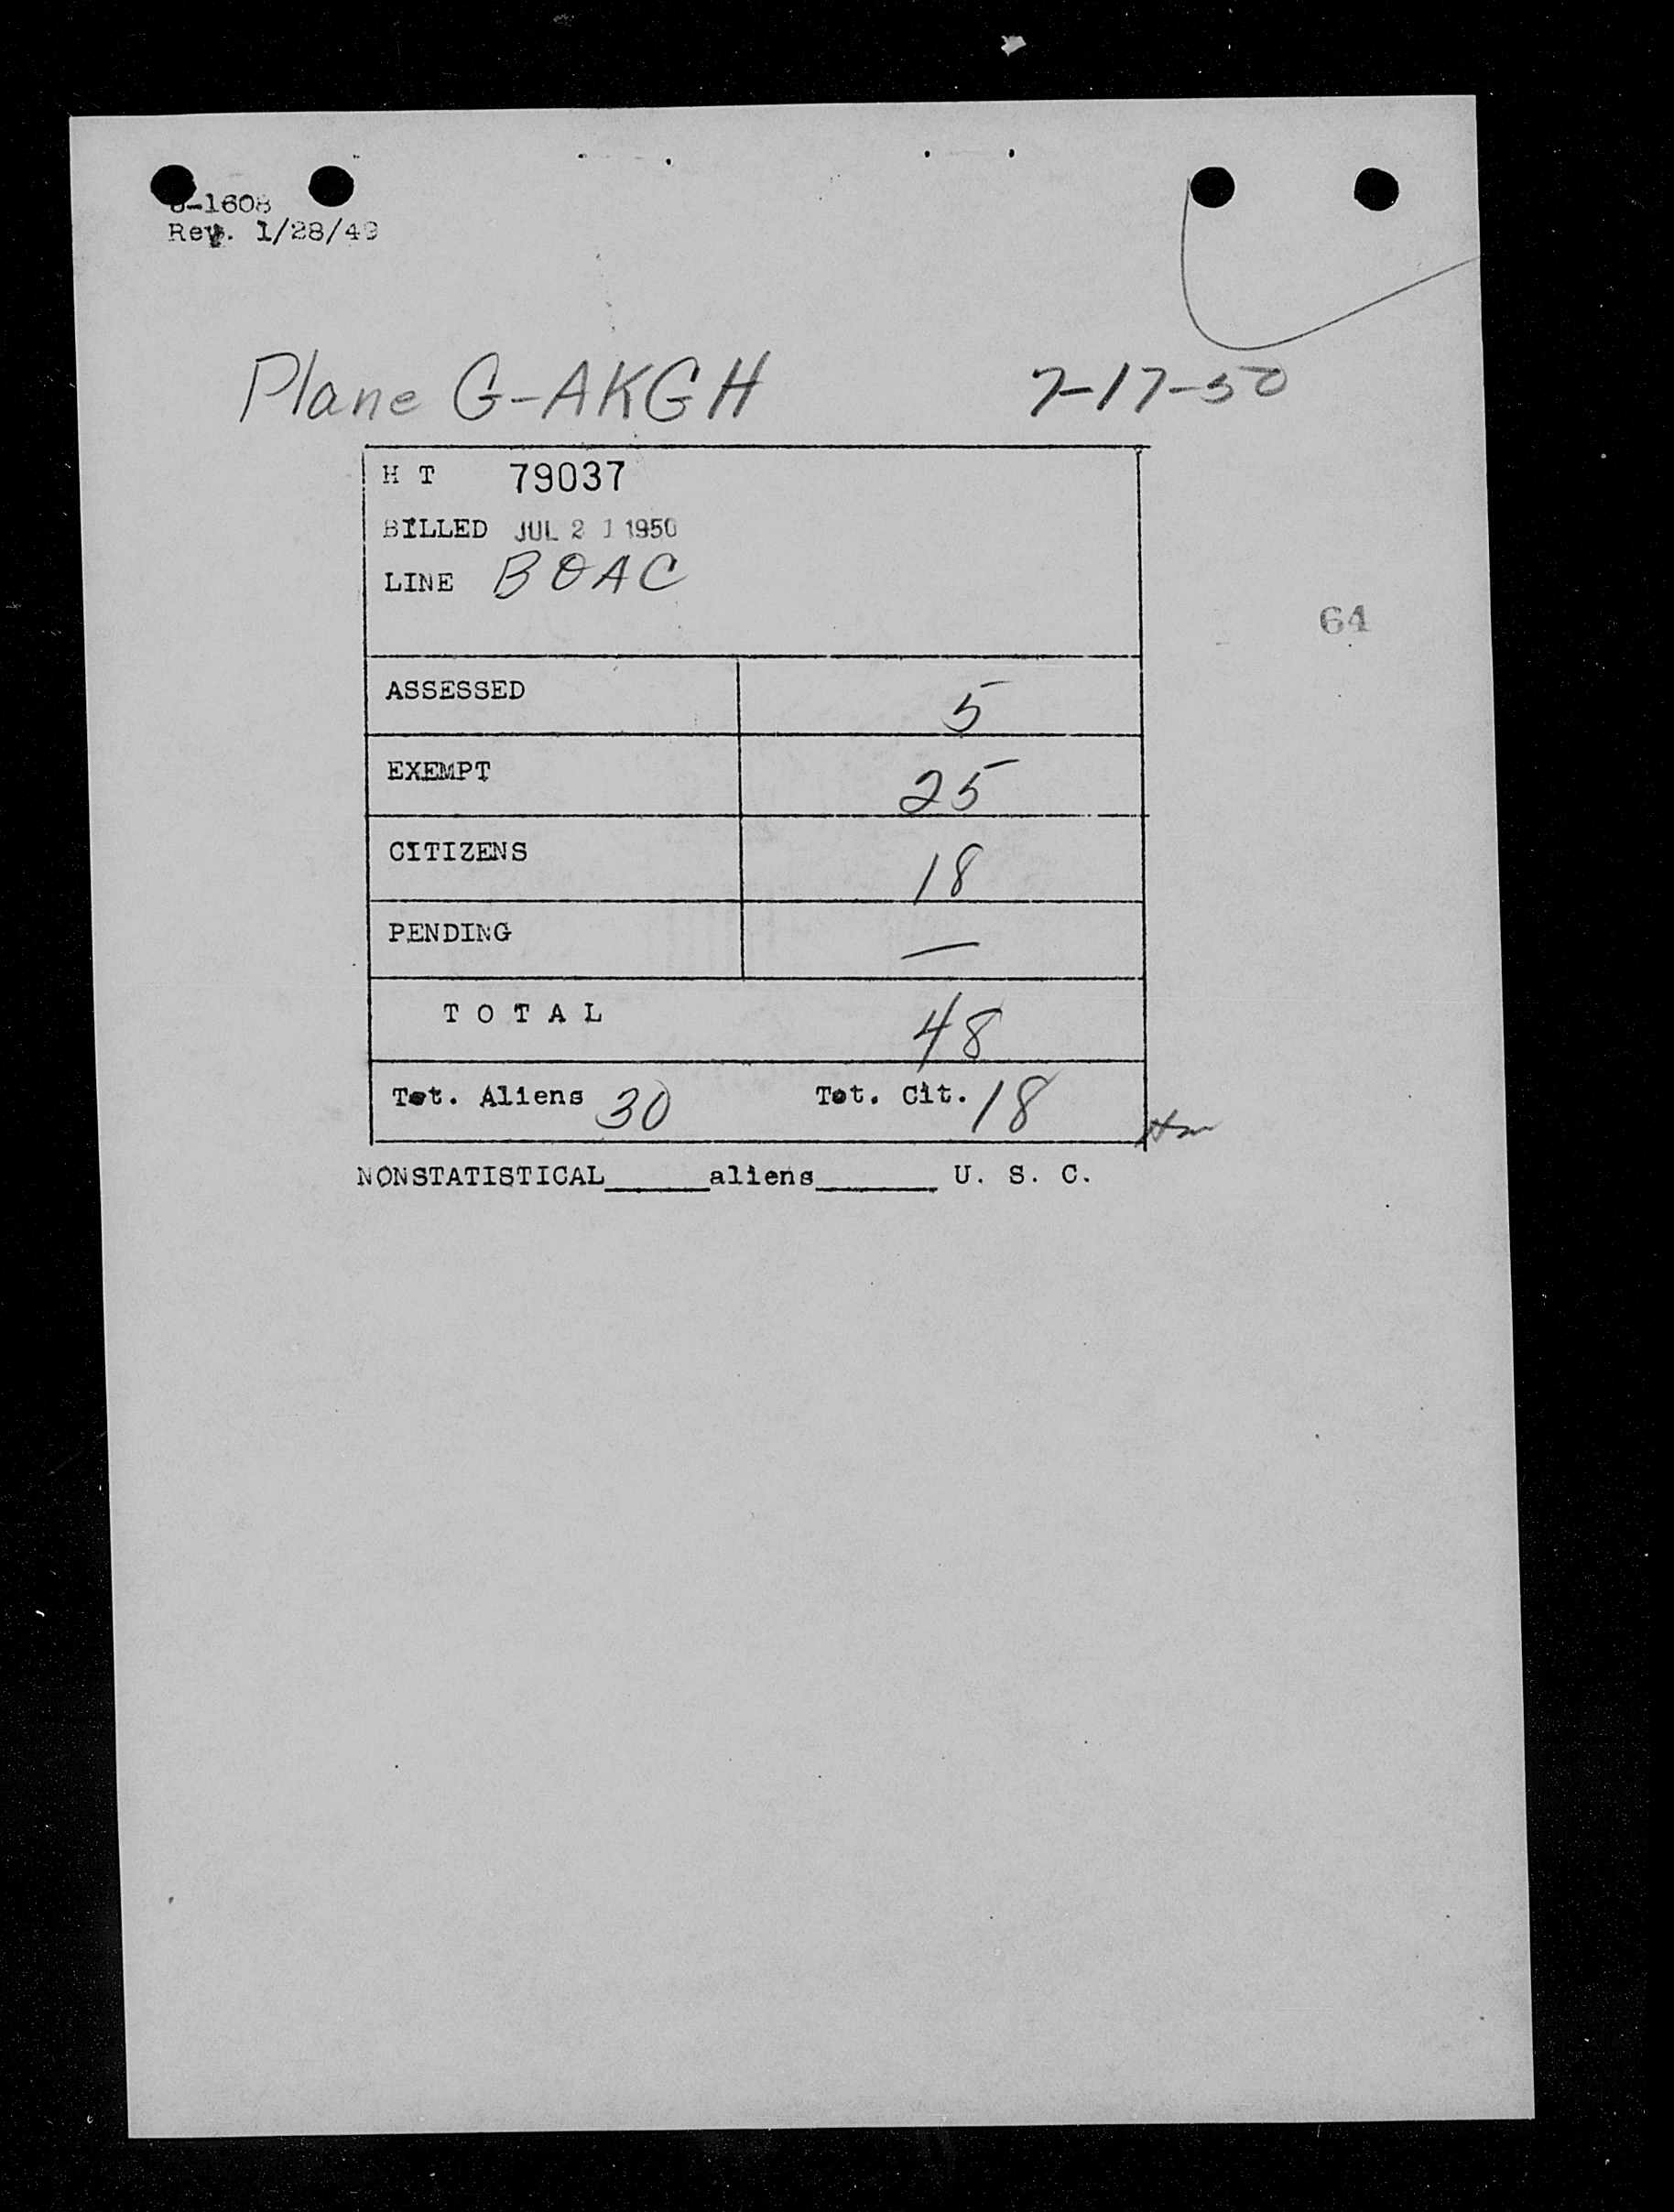 -1608
Rev. 1/28/49
Plane G-AKGH 7-17-50
H T 79037
BILLED JUL 21 1950
LINE BOAC
64
ASSESSED 5
EXEMPT 25
CITIZENS 18
PENDING —
T O T A L 48
Tot. Aliens 30 Tot. Cit. 18
NONSTATISTICAL______aliens_______ U. S. C.